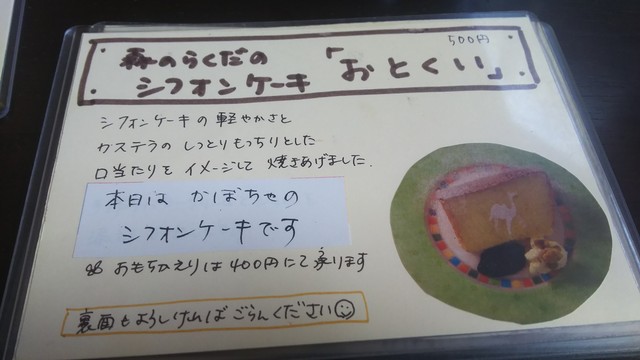 500円
森のらくだの
シフォンケーキ 「おとくい」
シフォンケーキの軽やかさと
カステラのしっとりもっちりとした
口当たりをイメージして焼きあげました.
本日は かぼちゃの
シフォンケーキです
おもちかえりは400円にて承ります
裏面もよろしければごらんください